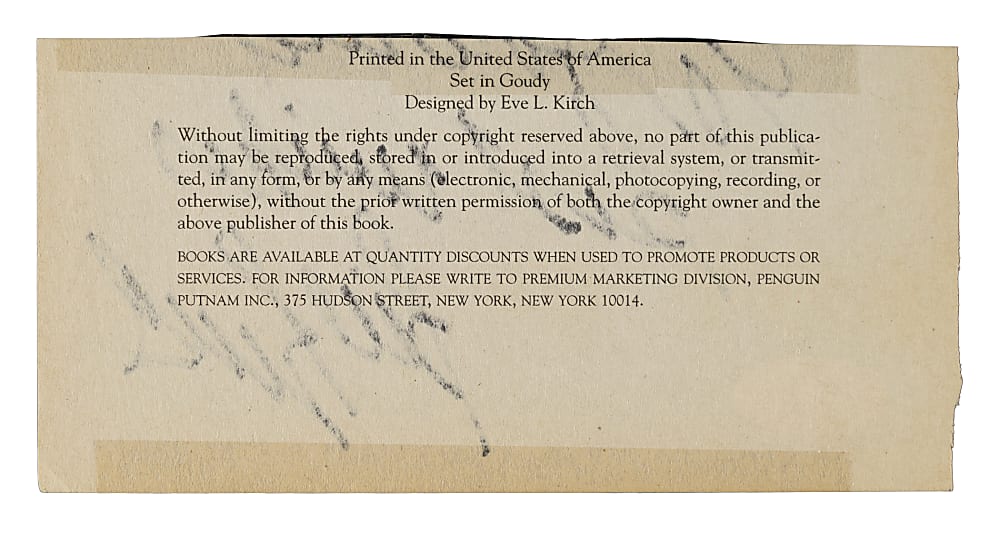 Printed in the United States of America
Set in Goudy
Designed by Eve L. Kirch
Without limiting the rights under copyright reserved above, no part of this publica-
tion may be reproduced, stored in or introduced into a retrieval system, or transmit-
ted, in any form, or by any means (electronic, mechanical, photocopying, recording, or
otherwise), without the prior written permission of both the copyright owner and the
above publisher of this book.
BOOKS ARE AVAILABLE AT QUANTITY DISCOUNTS WHEN USED TO PROMOTE PRODUCTS OR
SERVICES. FOR INFORMATION PLEASE WRITE TO PREMIUM MARKETING DIVISION, PENGUIN
PUTNAM INC., 375 HUDSON STREET, NEW YORK, NEW YORK 10014.